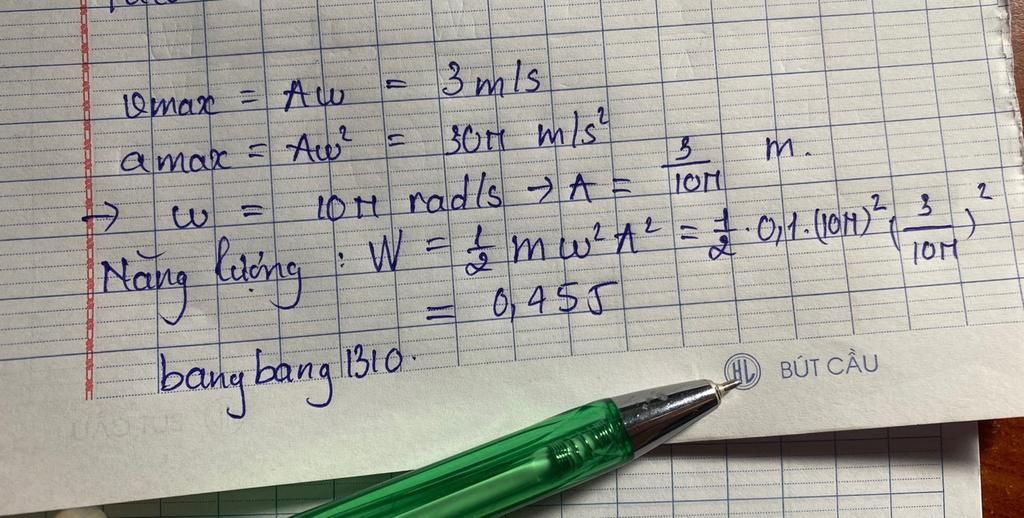 vmax = Aω = 3 m/s
amax = Aω² = 30π m/s²
→ ω = 10π rad/s → A = 3/10π m.
Năng lượng : W = 1/2 mω²A² = 1/2 · 0,1 · (10π)² (3/10π)²
= 0,45 J
bangbang1310.
HL BÚT CẦU